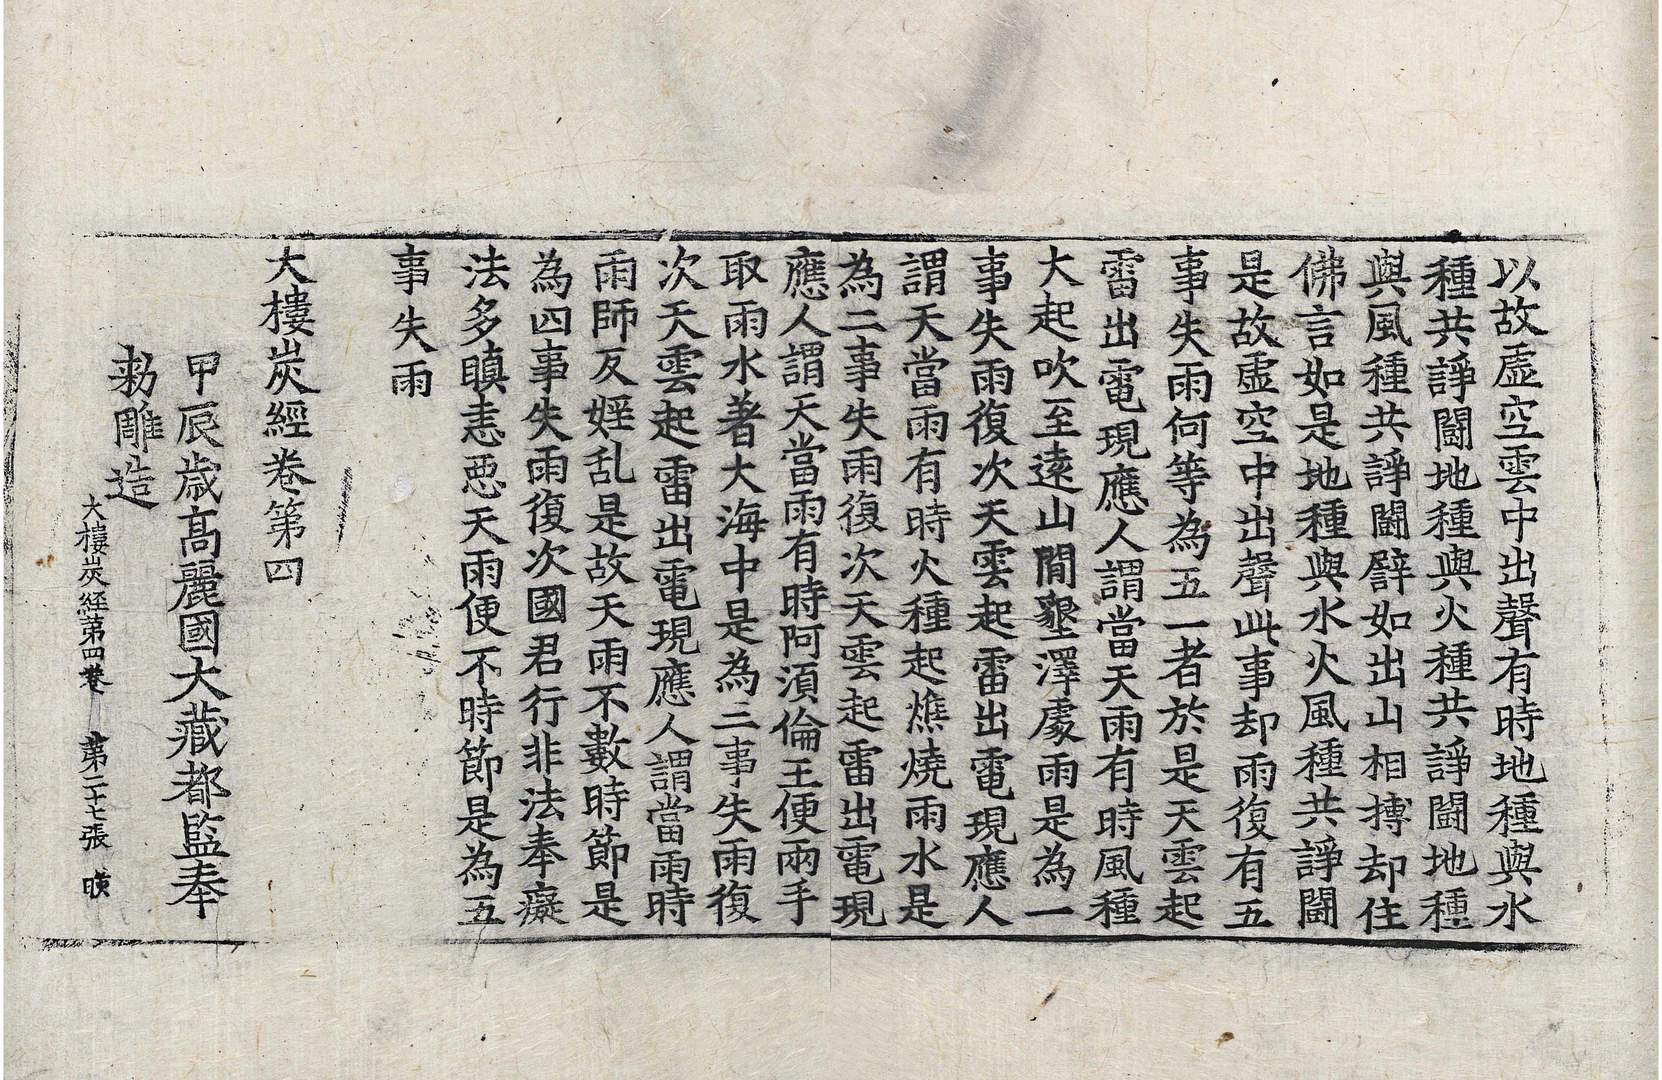 以故虛空雲中出聲有時地種與水
種共諍鬪地種與火種共諍鬪地種
與風種共諍鬪譬如出山相搏却住
佛言如是地種與水火風種共諍鬪
是故虛空中出聲此事却雨復有五
事失雨何等為五一者於是天雲起
雷出電現應人謂當天雨有時風種
大起吹至遠山閒墾澤處雨是為一
事失雨復次天雲起雷出電現應人
謂天當雨有時火種起燋燒雨水是
為二事失雨復次天雲起雷出電現
應人謂天當雨有時阿須倫王便兩手
取雨水著大海中是為三事失雨復
次天雲起雷出電現應人謂當雨時
雨師反婬乱是故天雨不數時節是
為四事失雨復次國君行非法奉癡
法多瞋恚惡天雨便不時節是為五
事失雨
大樓炭經卷第四
甲辰歲高麗國大藏都監奉
勑雕造
大樓炭経第四卷 第二十七張 㬒